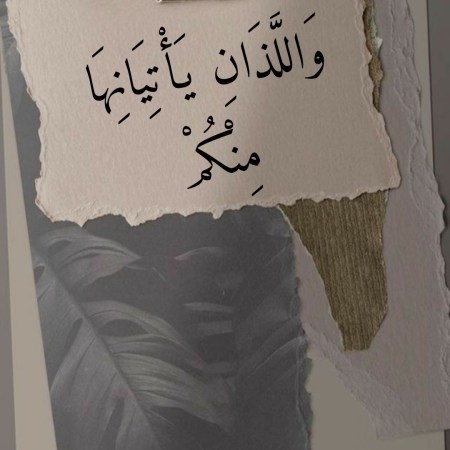 وَاللَّذَانِ يَأْتِيَانِهَا
مِنْكُمْ